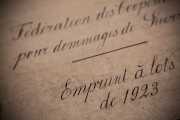 Fédération des Coopér
pour dommages de Guerre
Emprunt à lots
de 1923